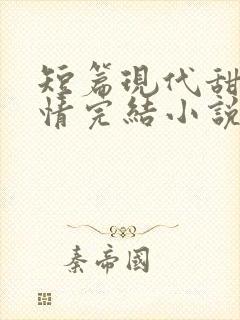 短篇現代甜
情完結小說
秦帝國